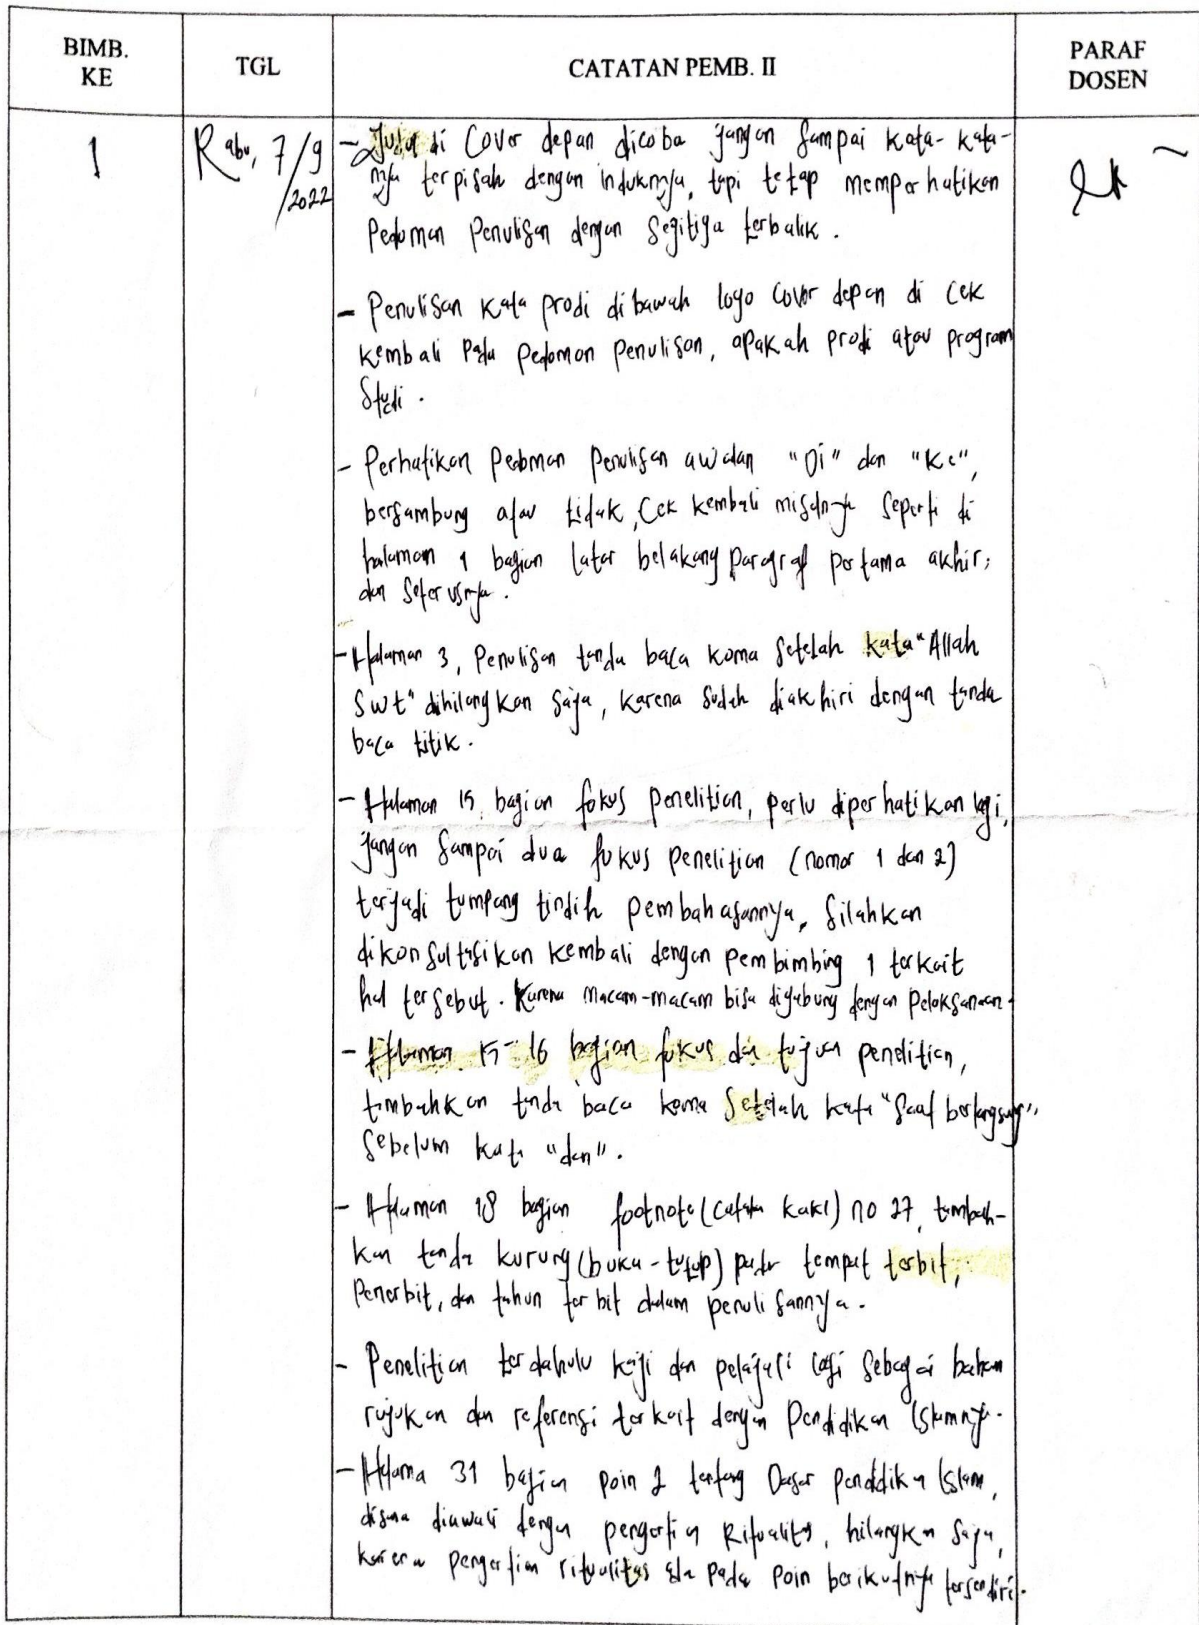 BIMB. KE
TGL
CATATAN PEMB. II
PARAF DOSEN
1
Rabu, 7/9/2022
- Judul di Cover depan dicoba jangan sampai kata-kata-
nya terpisah dengan induknya, tapi tetap memperhatikan
Pedoman Penulisan dengan Segitiga terbalik.
- Penulisan kata prodi dibawah logo cover depan di cek
kembali pada pedoman penulisan, apakah prodi atau program
Studi.
- Perhatikan Pedoman Penulisan awalan "Di" dan "Ke",
bersambung atau tidak, Cek kembali misalnya seperti di
halaman 1 bagian latar belakang paragraf pertama akhir,
dan seterusnya.
- Halaman 3, Penulisan tanda baca koma setelah kata "Allah
Swt" dihilangkan saja, karena sudah diakhiri dengan tanda
baca titik.
- Halaman 15 bagian fokus penelitian, perlu diperhatikan lagi,
jangan sampai dua fokus penelitian (nomor 1 dan 2)
terjadi tumpang tindih pembahasannya, Silahkan
dikonsultasikan kembali dengan pembimbing 1 terkait
hal tersebut. Karena macam-macam bisa digabung dengan pelaksanaan.
- Halaman 15-16 bagian fokus dan tujuan penelitian,
tambahkan tanda baca koma setelah kata "Saat berlangsung"
Sebelum kata "dan".
- Halaman 18 bagian footnote (catatan kaki) no 27, tambah-
kan tanda kurung (buka-tutup) pada tempat terbit,
Penerbit, dan tahun terbit dalam penulisannya.
- Penelitian terdahulu kaji dan pelajari lagi sebagai bahan
rujukan dan referensi terkait dengan Pendidikan Islamnya.
- Halama 31 bagian poin 2 tentang Dasar pendidikan Islam,
disana diawali dengan pengertian Ritualitas, hilangkan saja,
karena pengertian ritualitas ada pada poin berikutnya tersendiri.